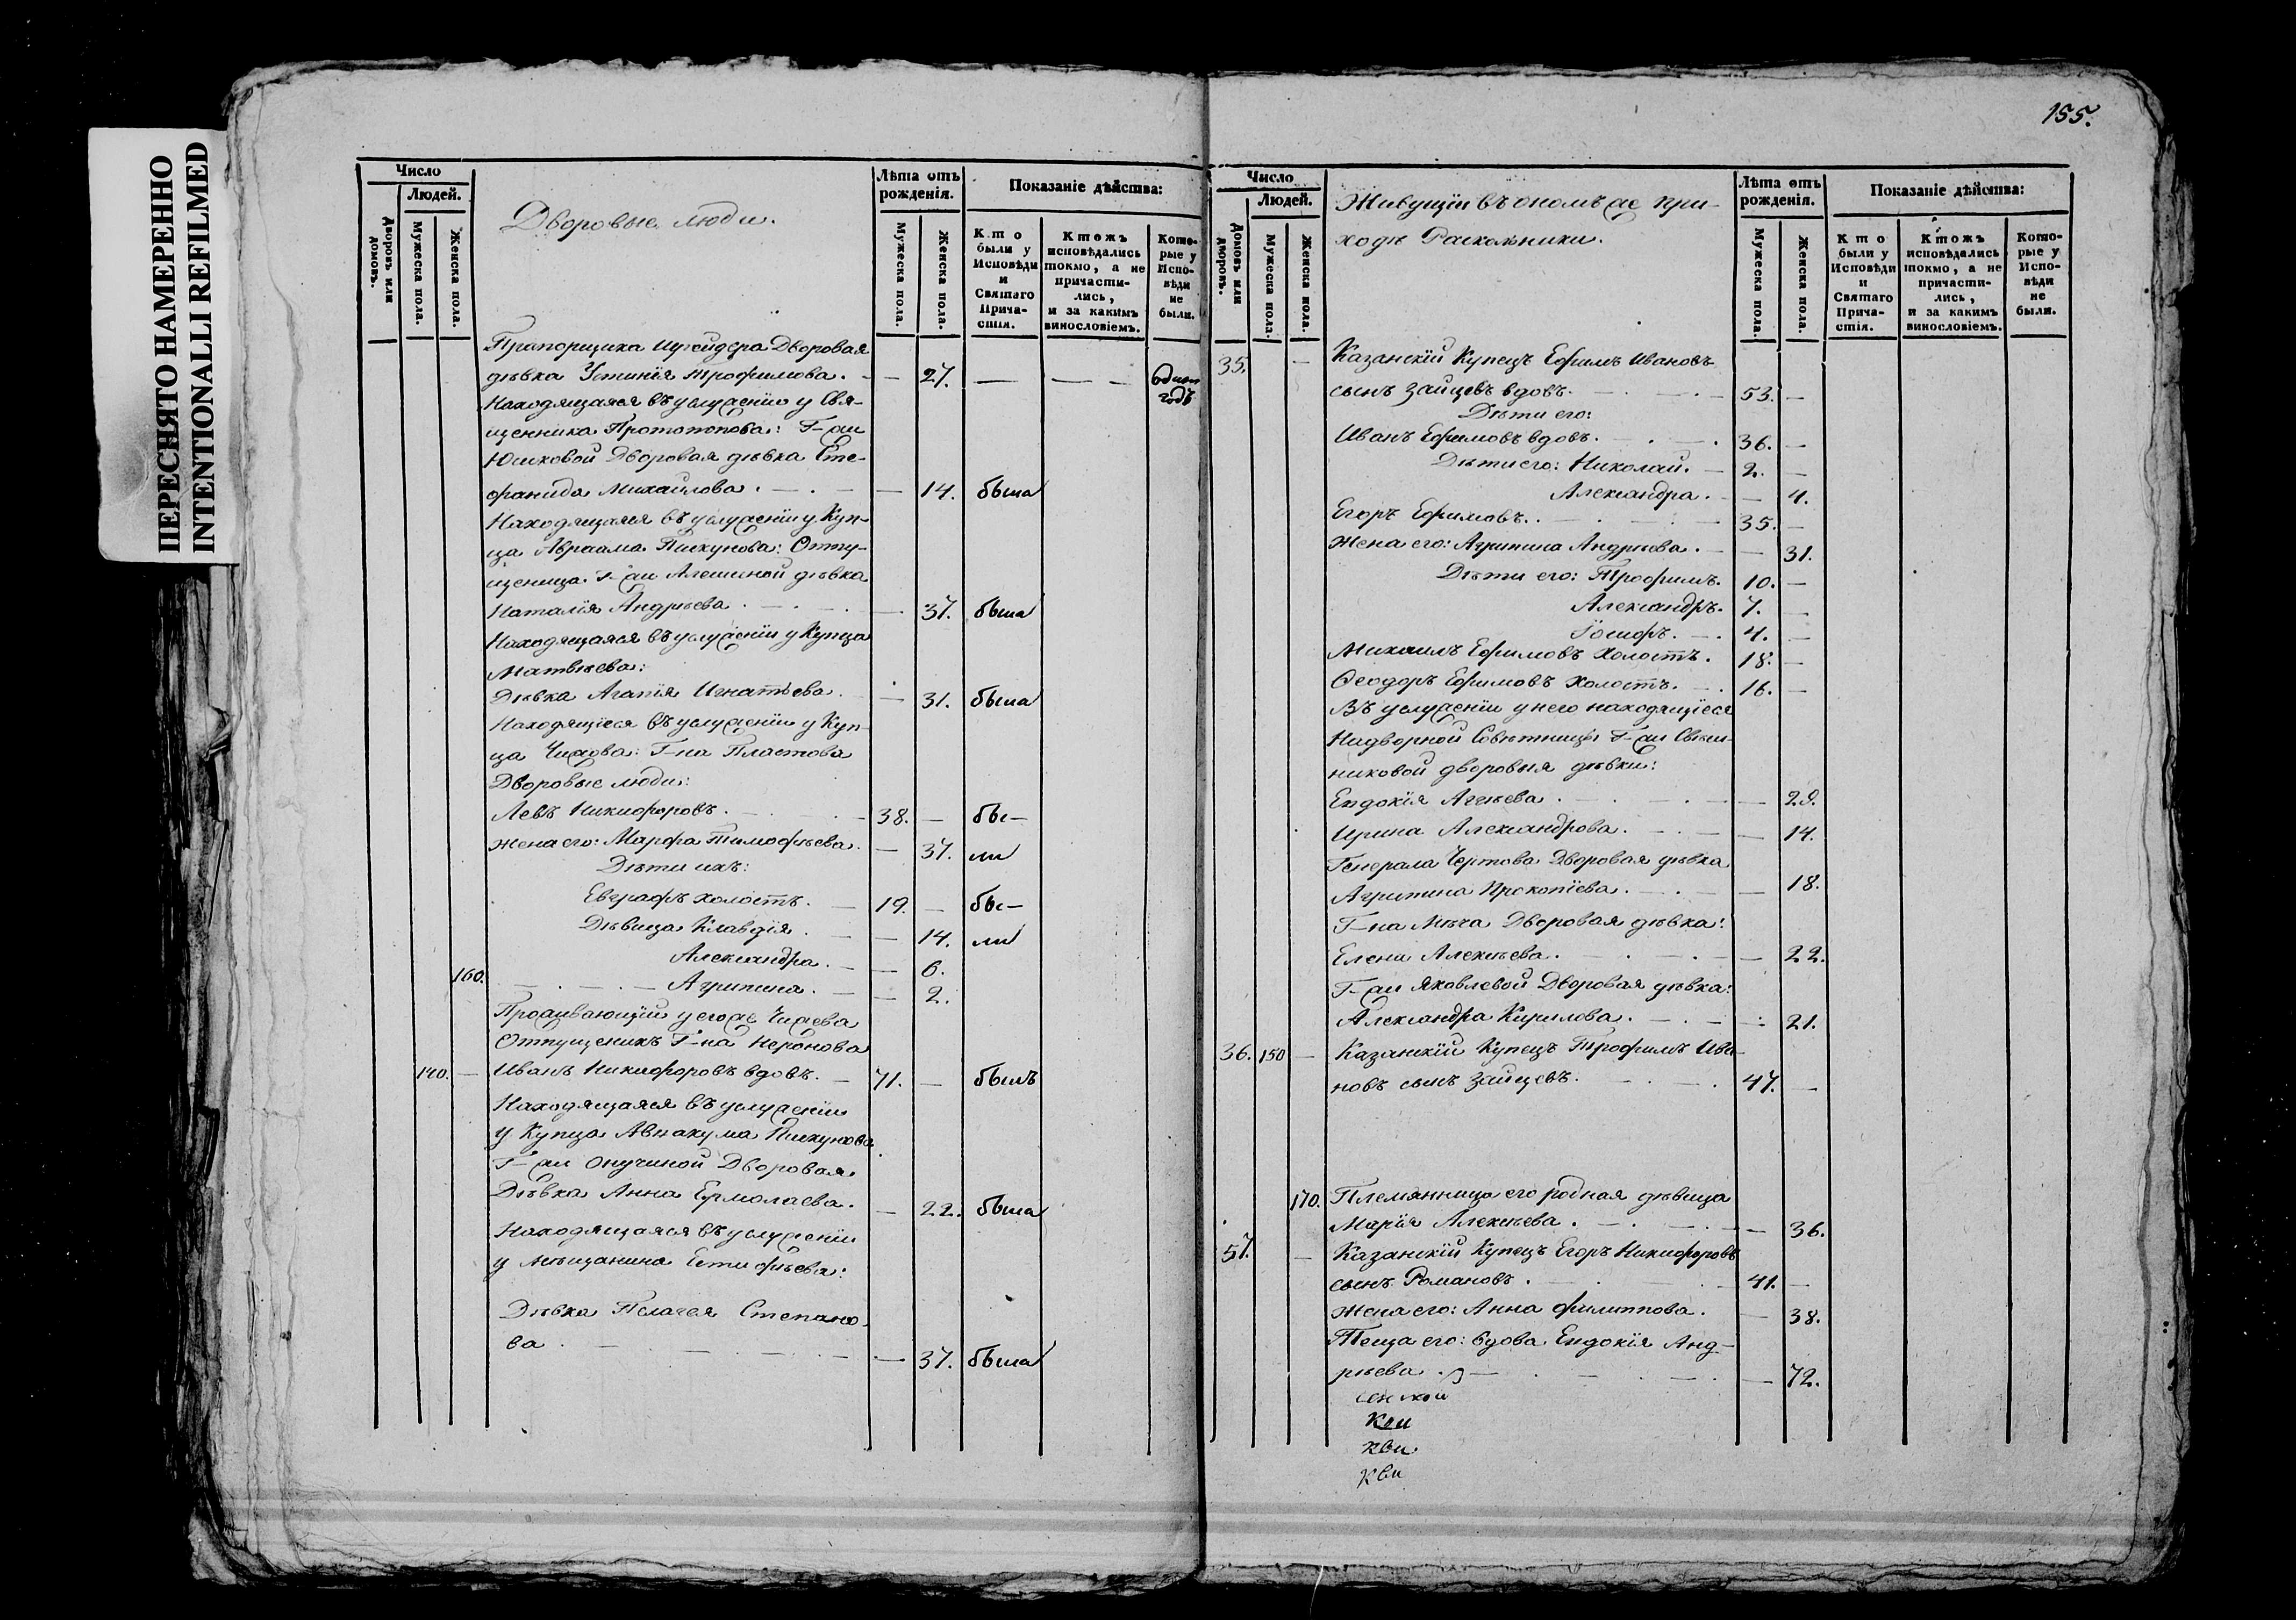 ПЕРЕСНЯТО НАМЕРЕННО
INTENTIONALLI REFILMED
Число
Людей.
Дворовъ или домовъ.
Мужеска пола.
Женска пола.
Дворовые люди.
Лѣта отъ рожденія.
Мужеска пола.
Женска пола.
Показаніе дѣйства:
Кто были у Исповѣди и Святаго Прича-стія.
Ктожъ исповѣдались токмо, а не причасти-лись, и за какимъ винословіемъ.
Кото-рые у Испо-вѣди не были.
Прапорщика Дворовая
дѣвка Устинія Трофимова. — 27. — — — один годъ
Находящаяся въ услуженіи у Свя-
щенника Протопопова: Г-жи
Юшковой Дворовая дѣвка Сте-
фанида Михайлова. — 14. была
Находящаяся въ услуженіи у Куп-
ца Авраама Пискунова: Отпу-
щеница Г-жи Алешиной дѣвка
Наталія Андрѣева. — 37. была
Находящаяся въ услуженіи у Купца
Матвѣева:
Дѣвка Агапія Игнатьева. — 31. была
Находящіеся въ услуженіи у Куп-
ца Чижова: Г-на Пластова
Дворовые люди:
Левъ Никифоровъ. 38. — бы-
жена его: Марфа Тимофѣева. — 37. ли
Дѣти ихъ:
Евграфъ холостъ. 19. — бы-
Дѣвица Клавдія. — 14. ли
Александра. — 6.
160. Агрипина. — 2.
Проживающій у егожъ
Отпущеникъ Г-на Неронова
140. — Иванъ Никифоровъ вдовъ. 71. — былъ
Находящаяся въ услуженіи
у Купца Аввакума Пискунова
Г-жи Онучиной Дворовая
Дѣвка Анна Ермолаева. — 22. была
Находящаяся въ услуженіи
у мѣщанина Естифѣева:
Дѣвка Пелагея Степано-
ва. — 37. была
155.
Число
Людей.
Домовъ или дворовъ.
Мужеска пола
Женска пола.
Живущіи въ ономъ же при-
ходѣ Раскольники.
Лѣта отъ рожденія.
Мужеска пола.
Женска пола.
Показаніе дѣйства:
Кто были у Исповѣди и Святаго Прича-стія.
Ктожъ исповѣдались токмо, а не причасти-лись, и за какимъ винословіемъ.
Кото-рые у Испо-вѣди не были.
35. — Казанскій Купецъ Ефимъ Ивановъ
сынъ Зайцевъ вдовъ. 53. —
Дѣти его:
Иванъ Ефимовъ вдовъ. 36. —
Дѣти его: Николай. 2. —
Александра. — 4.
Егоръ Ефимовъ. 35. —
Жена его: Агрипина Андрѣева. — 31.
Дѣти его: Трофимъ. 10. —
Александръ. 7. —
Іосифъ. 4. —
Михаилъ Ефимовъ холостъ. 18. —
Ѳеодоръ Ефимовъ холостъ. 16. —
Въ услуженіи у него находящіеся
Надворной Совѣтницы Г-жи
никовой дворовыя дѣвки:
Евдокія Аггѣева. — 29.
Ирина Александрова. — 14.
Генерала Чертова Дворовая дѣвка
Агрипина Прокопіева. — 18.
Г-на Мѣча Дворовая дѣвка:
Елена Алексѣева. — 22.
Г-жи Яковлевой Дворовая дѣвка:
Александра Кирилова. — 21.
36. 150 — Казанскій Купецъ Трофимъ Ива-
новъ сынъ Зайцевъ. 47. —
170. Племянница его родная дѣвица
Марія Алексѣева. — 36.
57. — Казанскій Купецъ Егоръ Никифоровъ
сынъ Романовъ. 41. —
Жена его: Анна Филиппова. — 38.
Теща его: вдова Евдокія Анд-
рѣева. — 72.